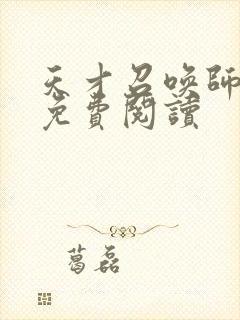 天才召喚師
免費閱讀
葛磊